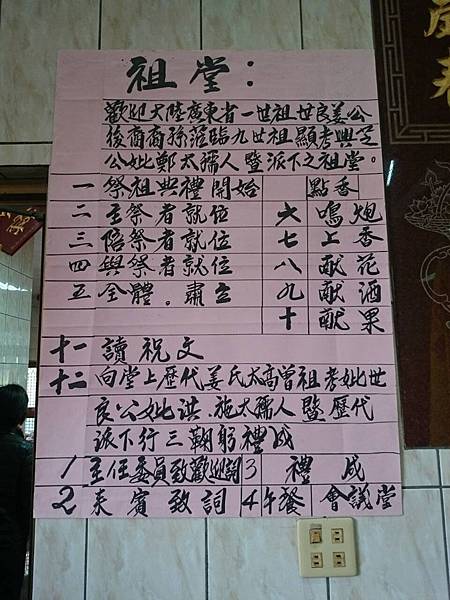 祖堂：
歡迎大陸廣東省一世祖世良姜公
後裔裔孫蒞臨九世祖顯考興芝
公妣鄭太孺人暨派下之祖堂。
一 祭祖典禮開始 點香
二 主祭者就位 六 鳴炮
三 陪祭者就位 七 上香
四 與祭者就位 八 献花
五 全體。肅立 九 献酒
十 献果
十一 讀祝文
十二 向堂上歷代姜氏太高曾祖考妣世
良公妣洪.施太孺人暨歷代
派下行三鞠躬禮成
1 主任委員致歡迎詞 3 禮成
2 來賓致詞 4 午餐 會議堂